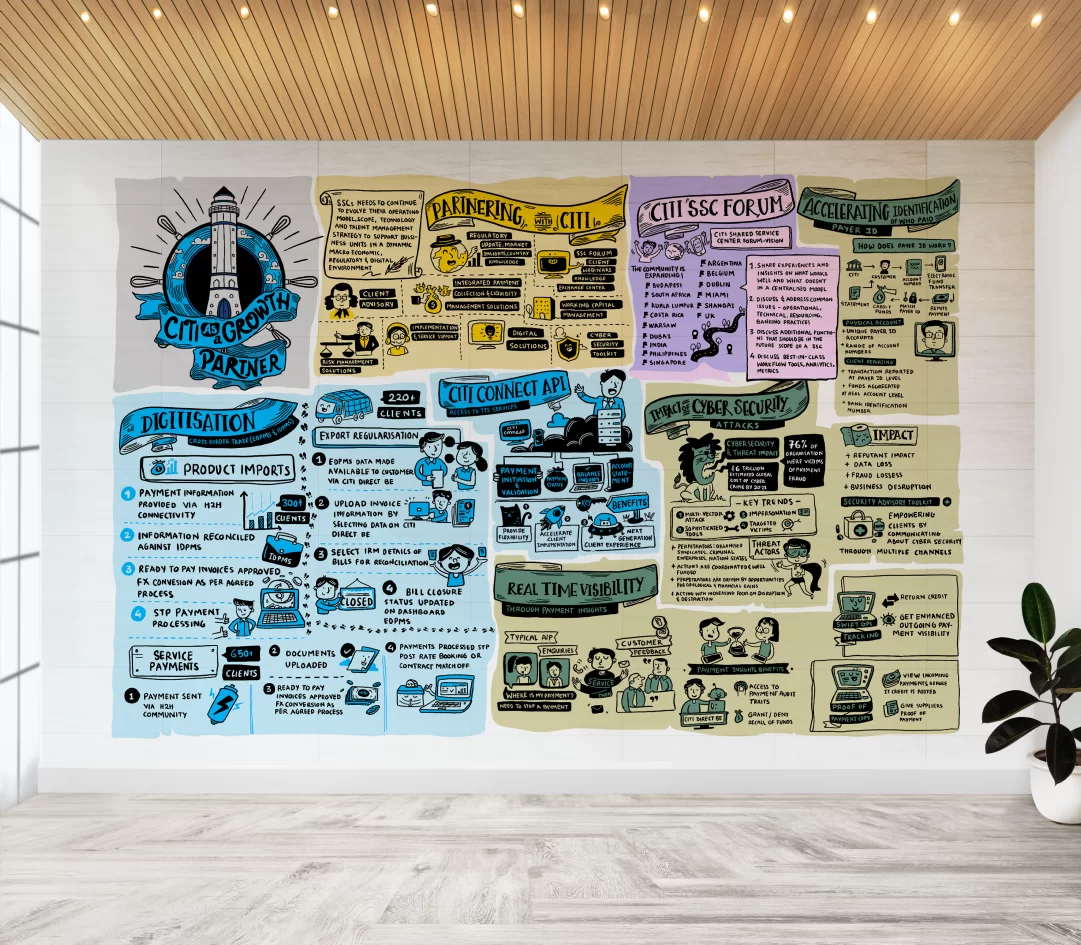 CITI AS
a GROWTH
PARTNER
SSCs NEEDS TO CONTINUE
TO EVOLVE THEIR OPERATING
MODEL, SCOPE, TECHNOLOGY
AND TALENT MANAGEMENT
STRATEGY TO SUPPORT BUSI-
NESS UNITS IN A DYNAMIC
MACRO ECONOMIC,
REGULATORY & DIGITAL
ENVIRONMENT
PARTNERING WITH CITI
REGULATORY
UPDATE, MARKET
INSIGHTS, COUNTRY
KNOWLEDGE
SSC FORUM
CLIENT
WEBINARS
KNOWLEDGE
EXCHANGE CENTER
CLIENT
ADVISORY
INTEGRATED PAYMENT
COLLECTION & LIQUIDITY
MANAGEMENT SOLUTIONS
WORKING CAPITAL
MANAGEMENT
RISK MANAGEMENT
SOLUTIONS
IMPLEMENTATION
& SERVICE SUPPORT
DIGITAL
SOLUTIONS
CYBER
SECURITY
TOOLKIT
CITI SSC FORUM
CITI SHARED SERVICE
CENTER FORUM-VISION
THE COMMUNITY IS
EXPANDING!
BUDAPEST
SOUTH AFRICA
KUALA LUMPUR
COSTA RICA
WARSAW
DUBAI
INDIA
PHILIPPINES
SINGAPORE
ARGENTINA
BELGIUM
DUBLIN
MIAMI
SHANGAI
UK
1. SHARE EXPERIENCES AND
INSIGHTS ON WHAT WORKS
WELL AND WHAT DOESN'T
IN A CENTRALIZED MODEL
2. DISCUSS & ADDRESS COMMON
ISSUES - OPERATIONAL,
TECHNICAL, RESOURCING,
BANKING PRACTICES
3. DISCUSS ADDITIONAL FUNCTI-
ONS THAT SHOULD BE IN THE
FUTURE SCOPE OF A SSC
4 DISCUSS BEST-IN-CLASS
WORKFLOW TOOLS, ANALYTICS,
METRICS
ACCELERATING IDENTIFICATION
OF WHO PAID
PAYER ID
HOW DOES PAYER ID WORK?
CITI
CUSTOMER
ACCOUNT
NUMBER
ELECTRONIC
FUND
TRANSFER
STATEMENT
CREDIT
FUNDS
MATCH
PAYER ID
REMITS
PAYMENT
PHYSICAL ACCOUNT
+ UNIQUE PAYER ID
ACCOUNTS
+ RANGE OF ACCOUNT
NUMBERS
CLIENT REPORTING
+ TRANSACTION REPORTED
AT PAYER ID LEVEL
+ FUNDS AGGREGATED
AT REAL ACCOUNT LEVEL
+ BANK IDENTIFICATION
NUMBER
DIGITISATION
CROSS BORDER TRADE (EDPMS & IDPMS)
PRODUCT IMPORTS
1 PAYMENT INFORMATION
PROVIDED VIA H2H
CONNECTIVITY
300+
CLIENTS
2 INFORMATION RECONCILED
AGAINST IDPMS
IDPMS
3 READY TO PAY INVOICES APPROVED
FX CONVESION AS PER AGREED
PROCESS
4 STP PAYMENT
PROCESSING
SERVICE
PAYMENTS
650+
CLIENTS
1 PAYMENT SENT
VIA H2H
COMMUNITY
2 DOCUMENTS
UPLOADED
3 READY TO PAY
INVOICES APPROVED
FX CONVERSION AS
PER AGREED PROCESS
4 PAYMENTS PROCESSED STP
POST RATE BOOKING OR
CONTRACT MATCH OFF
220+
CLIENTS
EXPORT REGULARISATION
1 EDPMS DATA MADE
AVAILABLE TO CUSTOMER
VIA CITI DIRECT BE
2 UPLOAD INVOICE
INFORMATION BY
SELECTING DATA ON CITI
DIRECT BE
3 SELECT IRM DETAILS OF
BILLS FOR RECONCILIATION
CLOSED
4 BILL CLOSURE
STATUS UPDATED
ON DASHBOARD
EDPMS
CITI CONNECT API
ACCESS TO TTS SERVICES
CITI
CONNECT
PAYMENT
INITIATION
&
VALIDATION
PAYMENT
STATUS
BALANCE
INQUIRY
ACCOUNT
STATE-
MENT
BENEFITS
PROVIDE
FLEXIBILITY
ACCELERATE
CLIENT
IMPLEMENTATION
NEXT
GENERATION
CLIENT EXPERIENCE
IMPACT OF CYBER SECURITY
ATTACKS
CYBERSECURITY
& THREAT IMPACT
$6 TRILLION
ESTIMATED GLOBAL
COST OF CYBER
CRIME BY 2021
76% OF
ORGANISATION
WERE VICTIMS
OF PAYMENT
FRAUD
- KEY TRENDS -
1 MULTI-VECTOR
ATTACK
2 SOPHISTICATED
TOOLS
3 IMPERSONATION
4 TARGETED
VICTIMS
THREAT
ACTORS
+ PERPETRATORS: ORGANISED
SYNDICATES, CRIMINAL
ENTERPRISES, NATION STATES
+ ACTIONS ARE COORDINATED & WELL
FUNDED
+ PERPETRATORS ARE DRIVEN BY OPPORTUNITIES
FOR GEOLOGICAL & FINANCIAL GAINS
+ ACTING WITH INCREASING FOCUS ON DISRUPTION
& DESTRUCTION
IMPACT
+ REPUTANT IMPACT
+ DATA LOSS
+ FRAUD LOSSESS
+ BUSINESS DISRUPTION
SECURITY ADVISORY TOOLKIT
EMPOWERING
CLIENTS BY
COMMUNICATING
ABOUT CYBER SECURITY
THROUGH MULTIPLE CHANNELS
REAL TIME VISIBILITY
THROUGH PAYMENT INSIGHTS
TYPICAL A/P
ENQUIRIES
WHERE IS MY PAYMENT?
NEED TO STOP A PAYMENT
SERVICE
CUSTOMER
FEEDBACK
PAYMENT INSIGHTS BENEFITS
CITI DIRECT BE
ACCESS TO
PAYMENT AUDIT
TRAITS
GRANT / DENY
RECALL OF FUNDS
SWIFT GPI
TRACKING
RETURN CREDIT
GET ENHANCED
OUTGOING PAY-
MENT VISIBILITY
PROOF OF
PAYMENT COPY
VIEW INCOMING
PAYMENTS BEFORE
IT CREDIT IS POSTED
GIVE SUPPLIERS
PROOF OF
PAYMENT